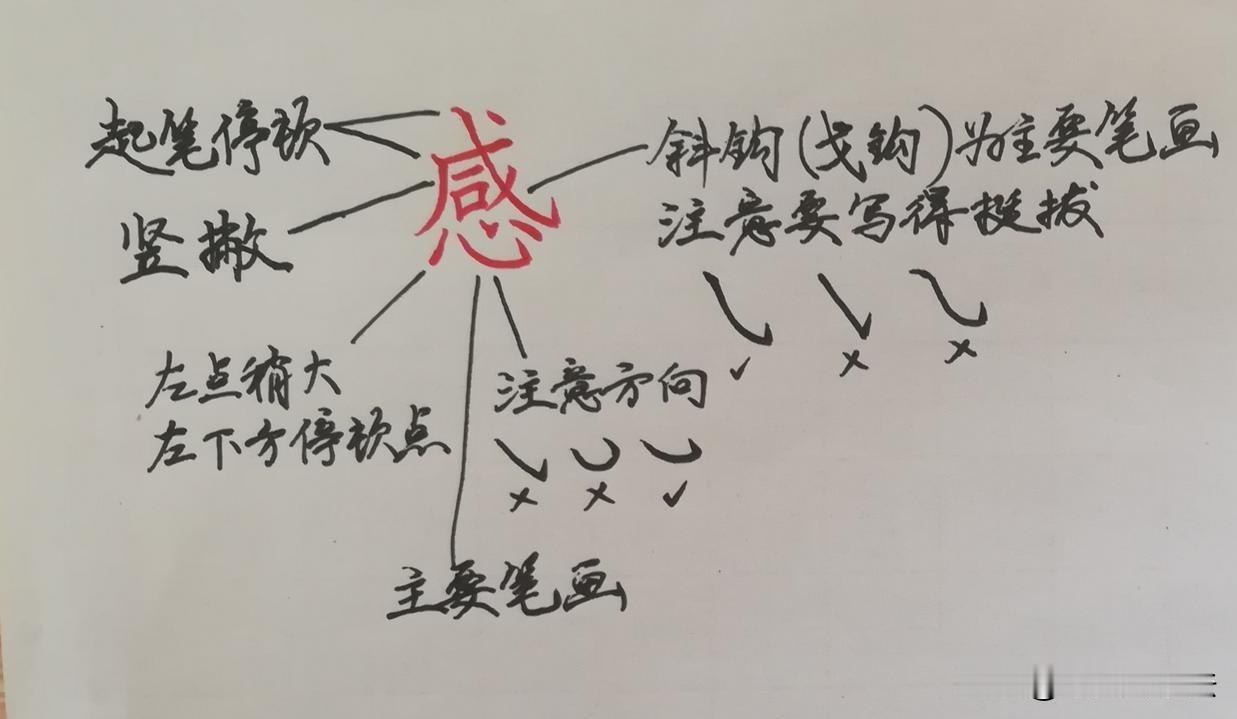 起笔停顿
感
斜钩(戈钩)为主要笔画
注意要写得挺拔
竖撇
✓ × ×
左点稍大
左下方停顿点
注意方向
× × ✓
主要笔画